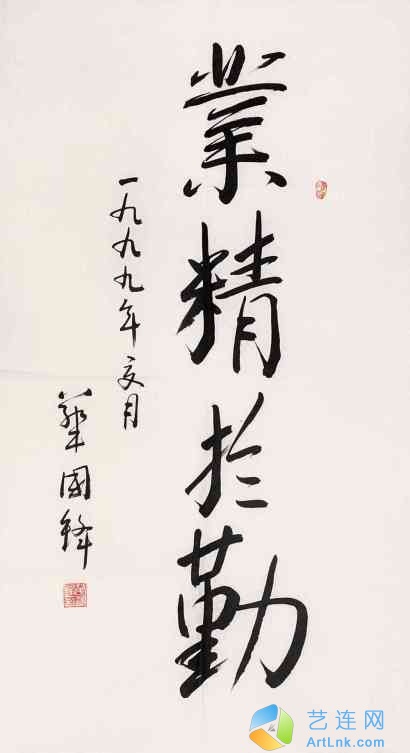 業精於勤
一九九九年夏月
華國鋒
艺连网
ArtLnk.com